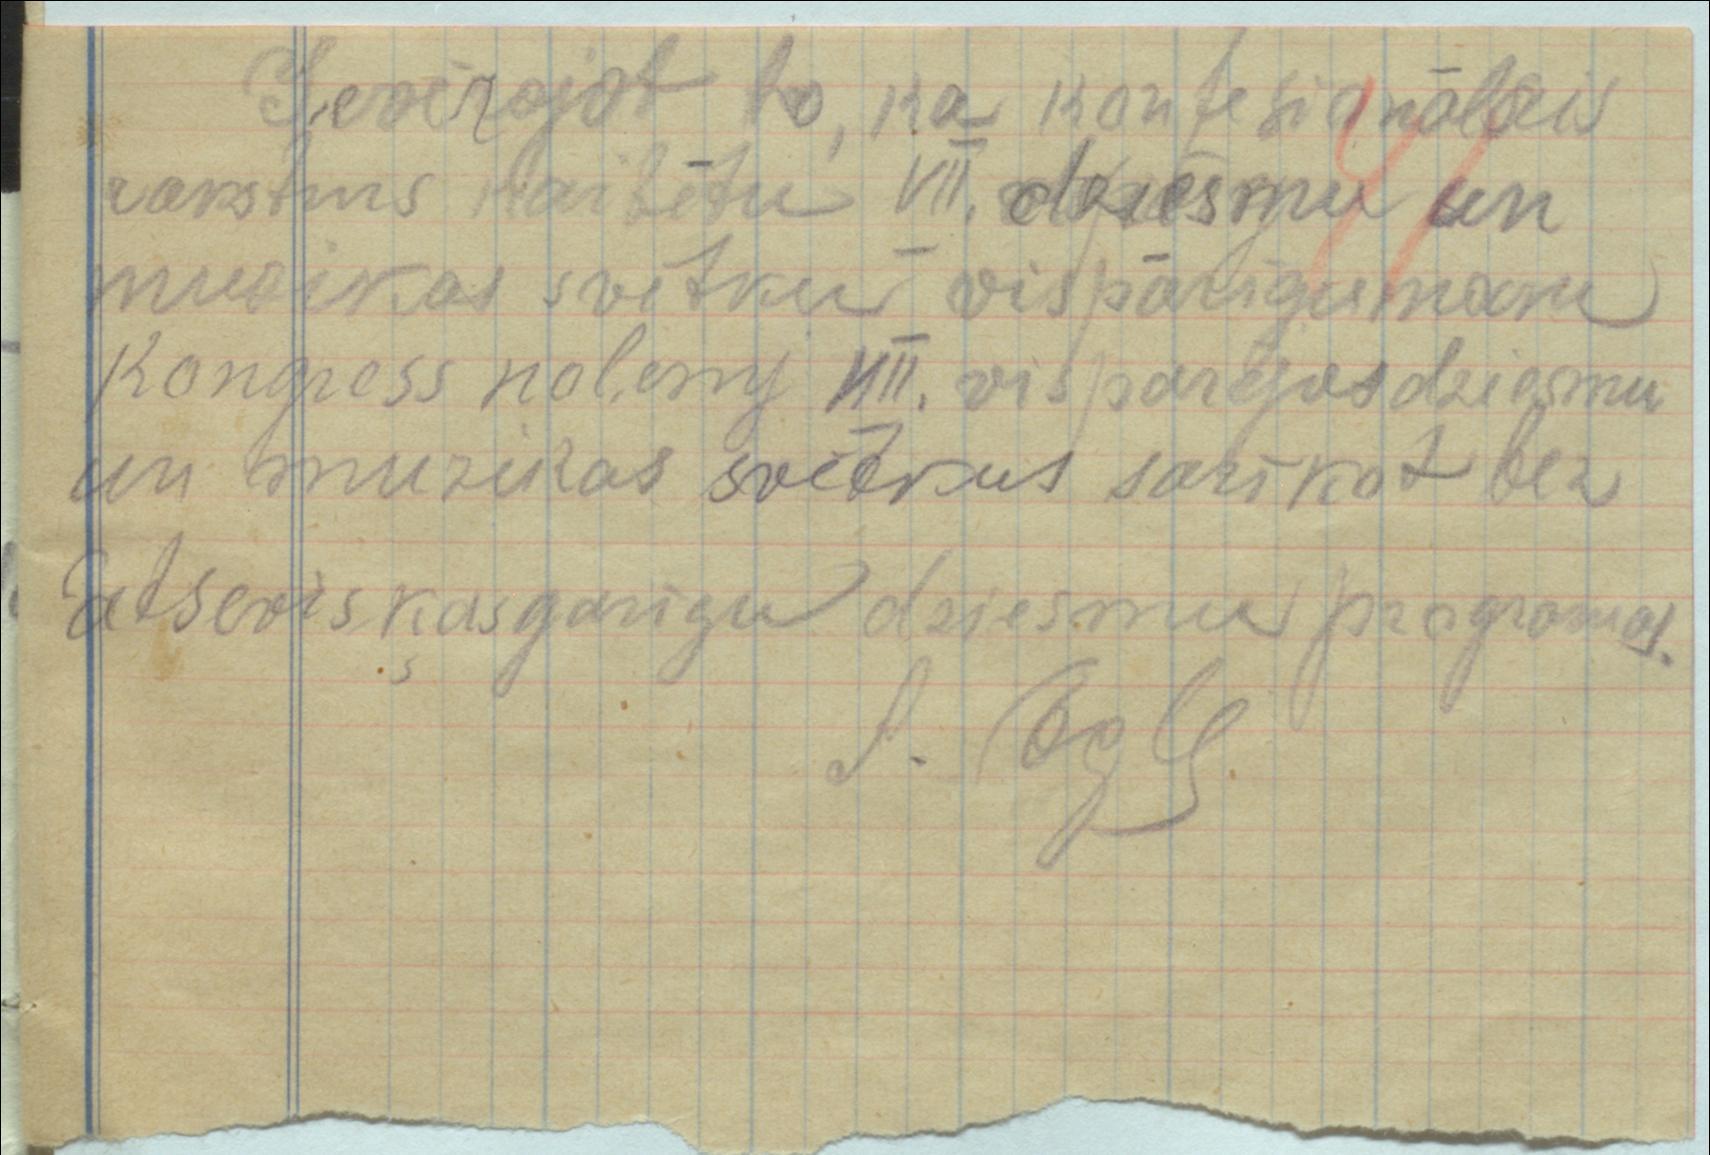 Ievērojot to, ka konfesionālais
raksturs kaitētu VII. dziesmu un
muzikas svētku vispārīgumam
Kongress nolemj VII. vispārējos dziesmu
un muzikas svētkus sarīkot bez
atsevišķas garīgu dziesmu programas.